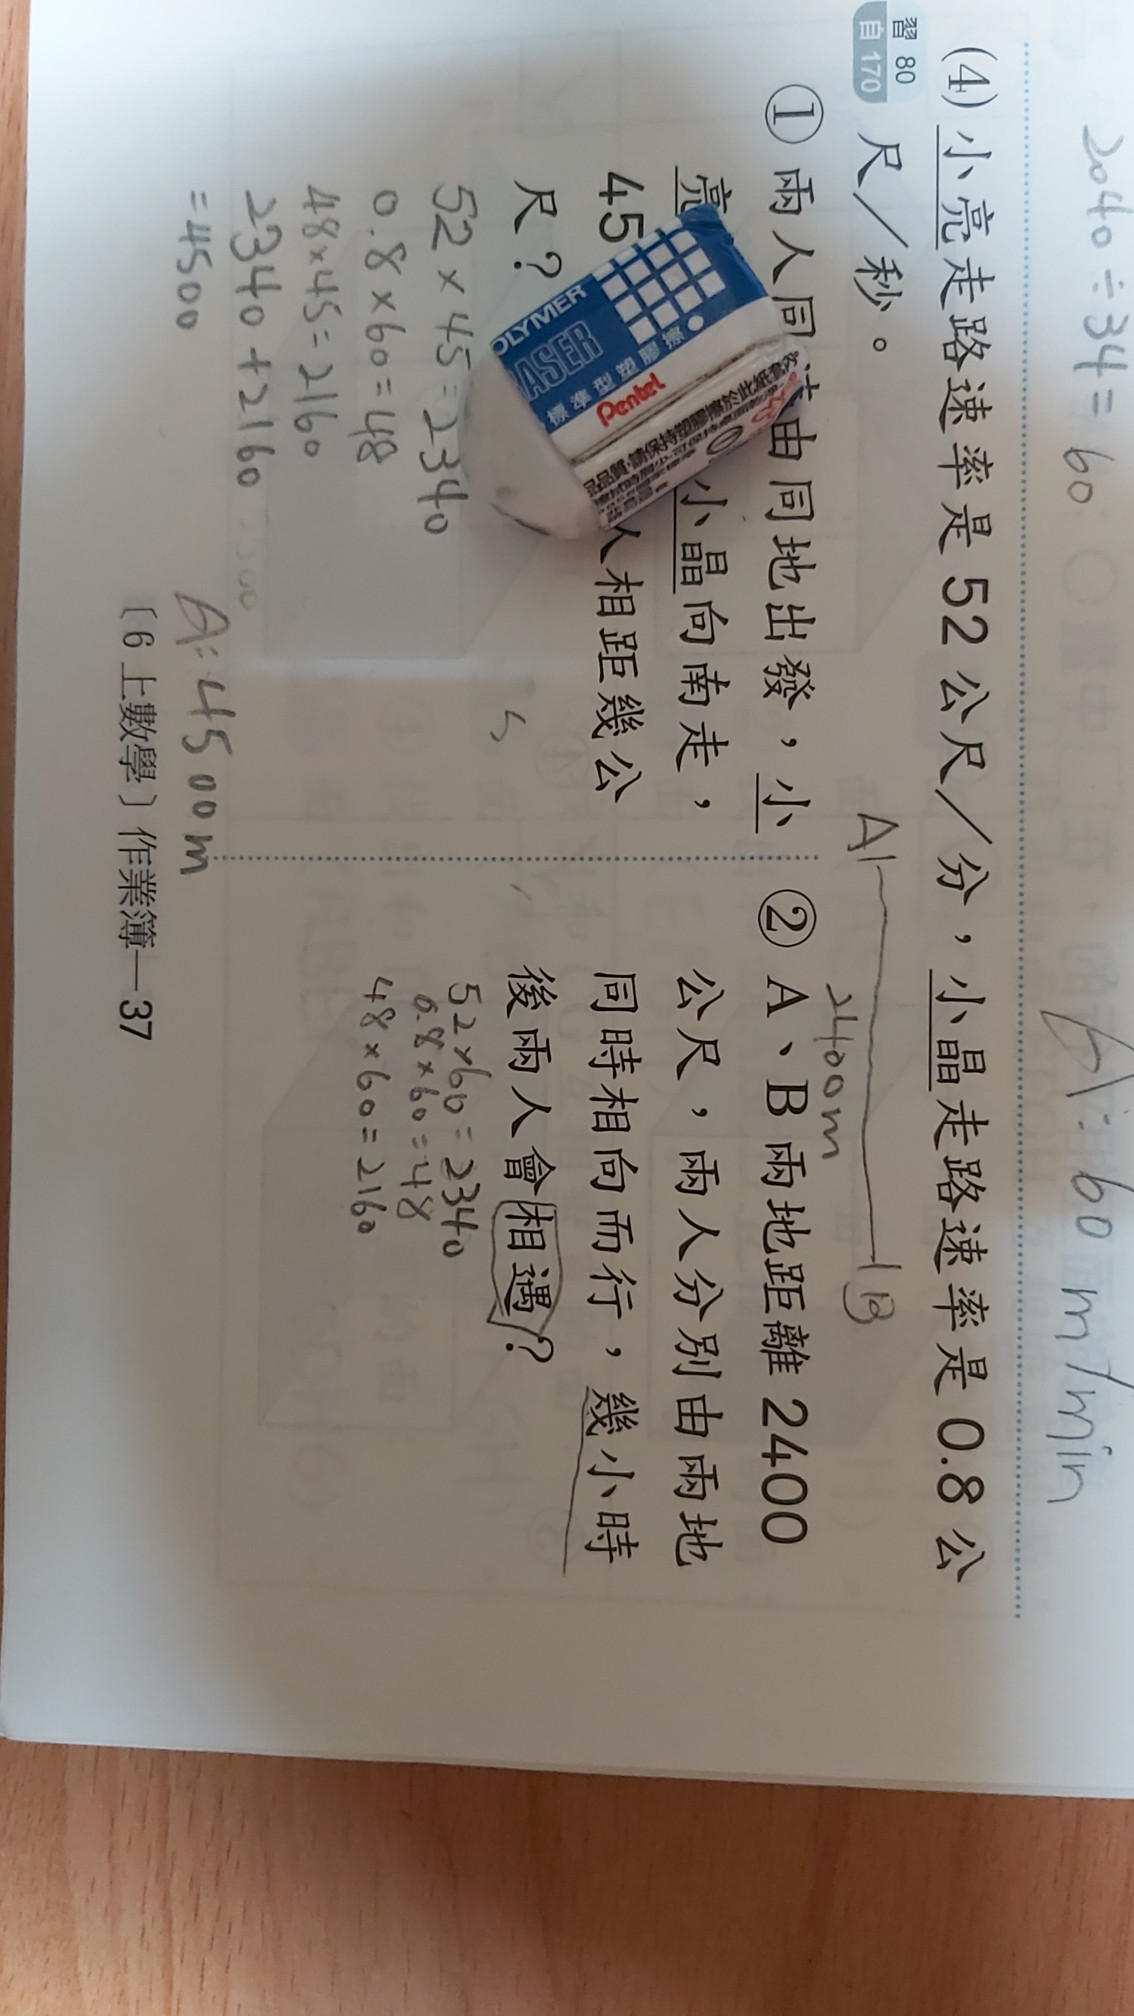 2040÷34=60
A:60 m/min
(4) 小亮走路速率是 52 公尺/分，小晶走路速率是 0.8 公
習 80
自 170
尺/秒。
A
B
2400m
① 兩人同 由同地出發，小
亮 小晶向南走，
45 人相距幾公
尺？
52×45=2340
0.8×60=48
48×45=2160
2340+2160
=4500
A:4500m
② A、B 兩地距離 2400
公尺，兩人分別由兩地
同時相向而行，幾小時
後兩人會相遇？
52×60=2340
0.8×60=48
48×60=2160
OLYMER
ASER
標準型塑膠擦
Pentel
〔6上數學〕作業簿—37